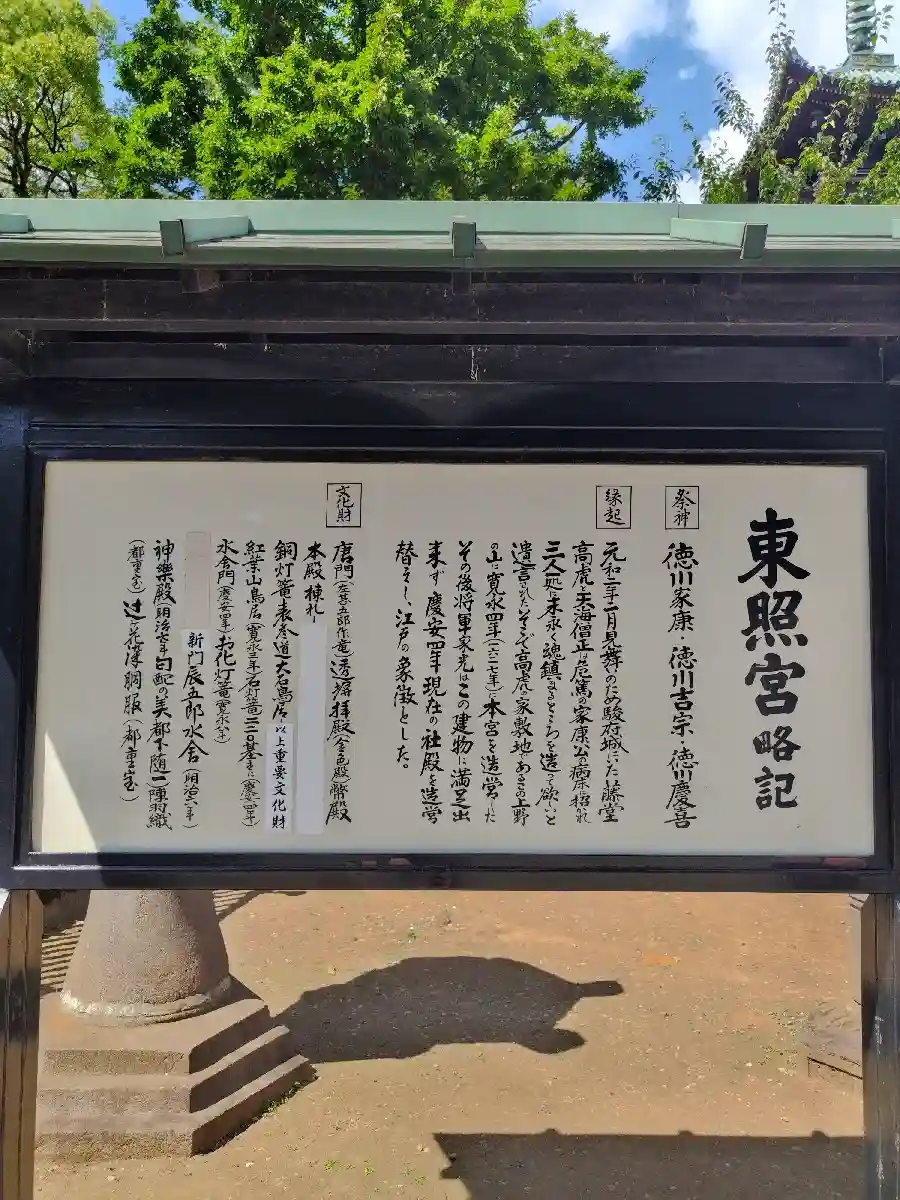 東照宮略記
祭神
徳川家康・徳川吉宗・徳川慶喜
縁起
元和二年二月見舞のため駿府城にいた藤堂
高虎と天海僧正は危篤の家康公の病床に招かれ
三人一処に末永く魂鎮まるところを造って欲いと
遺言されたいそこで高虎の家敷地であるこの上野
の山に寛永四年(一六二七年)に本宮を造営した
その後将軍家光はこの建物に満足出
来ず慶安四年現在の社殿を造営
替えし、江戸の象徴とした。
文化財
唐門(左甚五郎作竜)透塀拝殿(金色殿)幣殿
本殿棟札
銅灯篭表参道大石鳥居以上重要文化財
紅葉山鳥居(寛永年)石灯篭二二〇基(慶安四年)
水舎門(慶安四年)お化灯篭(寛永八年)
新門辰五郎水舎(明治六年)
神樂殿(明治七年)勾配の美都下随一陣羽織
(都重宝)辻ヶ花染胴服(都重宝)